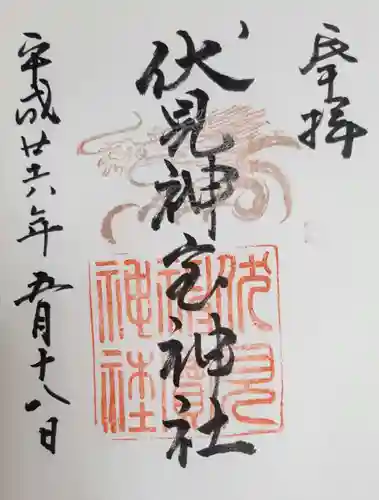 奉拝
伏見神宝神社
伏見神寶神社
平成廿六年五月十八日